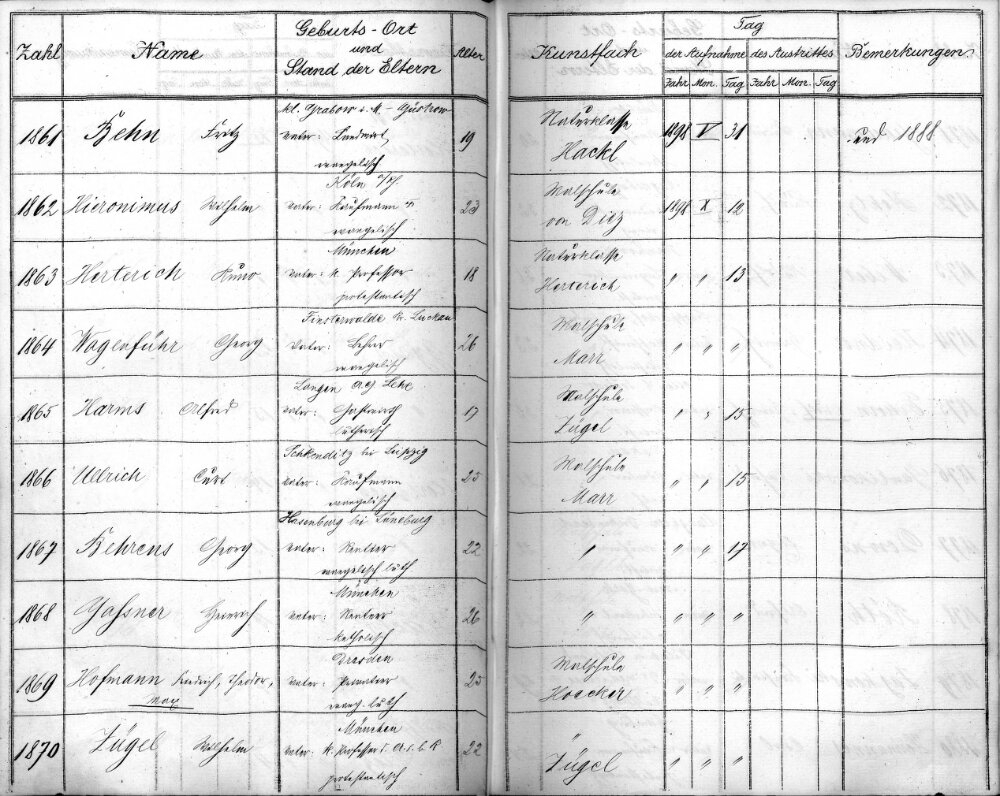 Zahl Name Geburts-Ort und Stand der Eltern Alter Kunstfach Tag der Aufnahme des Austrittes Bemerkungen
Jahr Mon. Tag Jahr Mon. Tag
kl. Grabow i. M. - Güstrow
1861 Behn Fritz Vater: Landwirt, 19 Naturklasse Hackl 1898 V 31 und 1888
evangelisch
Köln a/Rh.
1862 Hieronimus Wilhelm Vater: Kaufmann 23 Malschule von Diez 1898 X 12
evangelisch
München
1863 Herterich Kuno Vater: k. Professor 18 Naturklasse Herterich " " 13
protestantisch
Finsterwalde Kr. Luckau
1864 Wagenführ Georg Vater: Lehrer 26 Malschule Marr " " "
evangelisch
Langen a.g. Lehe
1865 Harms Alfred Vater: Gastwirth 17 Malschule Zügel " " 15
lutherisch
Schkeuditz bei Leipzig
1866 Ullrich Curt Vater: Kaufmann 25 Malschule Marr " " 15
evangelisch
Hasenburg bei Lüneburg
1867 Behrens Georg Vater: Rentier 22 " " " 17
evangelisch luth
München
1868 Gassner Heinrich Vater: Rentier 26 " " " "
katholisch
Dresden
1869 Hofmann Friedrich, Theodor, Max Vater: Privatier 25 Malschule Hoecker " " "
evang. luth
München
1870 Zügel Wilhelm Vater: k. Professor d. A. d. b. K 22 " Zügel " " "
protestantisch